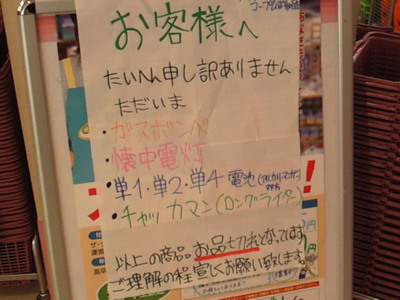 お客様へ
たいへん申し訳ありません
ただいま
・ガスボンベ
・懐中電灯
・単1・単2・単4 電池(アルカリ・マンガン
・チャッカマン(ロングライター)
以上の商品、お品切れとなってます。
ご理解の程宜しくお願い致します。